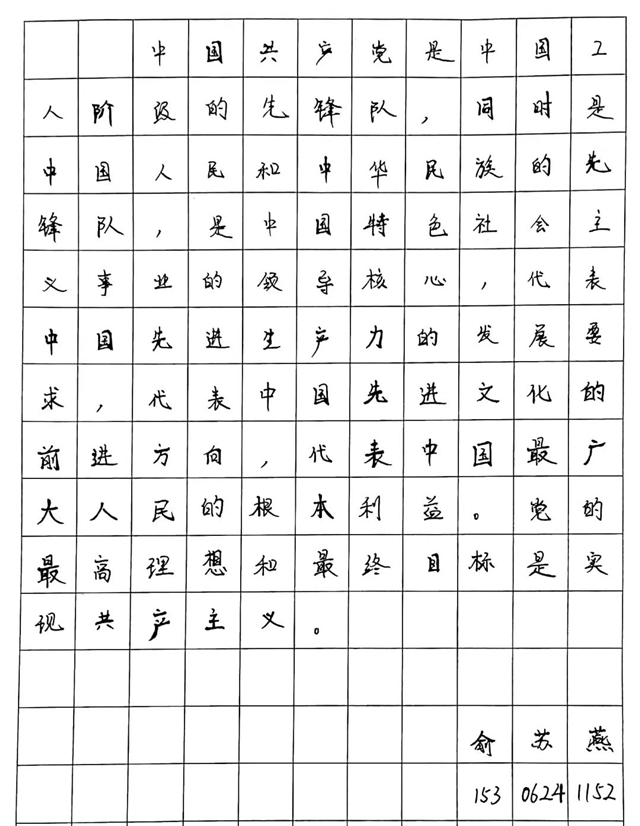 中国共产党是中国工
人阶级的先锋队，同时是
中国人民和中华民族的先
锋队，是中国特色社会主
义事业的领导核心，代表
中国先进生产力的发展要
求，代表中国先进文化的
前进方向，代表中国最广
大人民的根本利益。党的
最高理想和最终目标是实
现共产主义。
俞苏燕
153 0624 1152